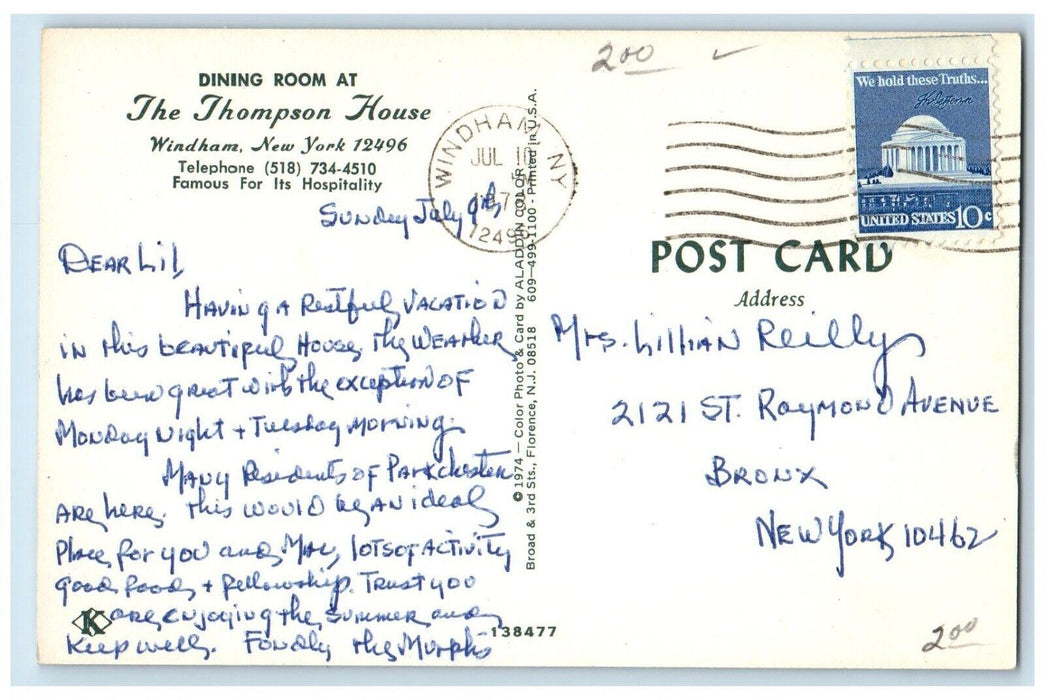 DINING ROOM AT
The Thompson House
Windham, New York 12496
Telephone (518) 734-4510
Famous For Its Hospitality
Sunday July 9th
DEAR Lil,
HAVING A Restful VACATION
in this beautiful House, The WEATHER
has been great with the exception OF
Monday Night + Tuesday Morning.
MANY Residents OF Parkchester
ARE here. this WOULD be AN ideal
Place for you and MAY, lots of ACTIVITY
good food, + fellowship. Trust you
are enjoying the summer and
Keep well. Fondly the Murphs
K
138477
© 1974 — Color Photo & Card by ALADDIN COLOR 609-499-1100 - Printed in U.S.A.
Broad & 3rd Sts., Florence, N.J. 08518
WINDHAM NY
JUL 10
1249
200
We hold these Truths...
UNITED STATES 10c
POST CARD
Address
Mrs. Lillian Reilly
2121 ST. RAYMOND AVENUE
BRONX
NEW YORK 10462
200